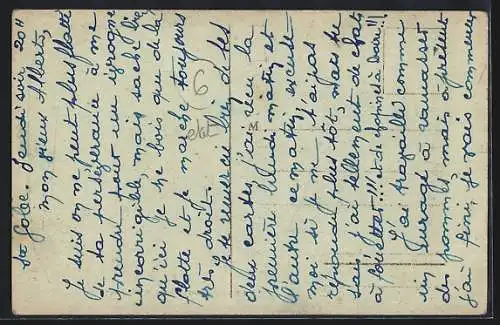 Ste Golbe. Jeudi soir 20 H
mon vieux Albert,
Je suis on ne peut plus flatté
de ta persévérance à me
prendre pour un ivrogne
incorrigible, mais sache bien
qu'ici je ne bois que de la
flotte et je marche toujours
très droit.
Je te remercie bien de tes
deux cartes, j'ai reçu la
première lundi matin et
l'autre ce matin, excuse
moi si je ne t'ai pas
répondu plus tôt, mais tu
sais j'ai tellement de chats
à fouetter!!! et de Dominici à
J'ai travaillé comme
un enragé à ramasser
des pommes, mais à présent
j'ai fini, je vais commencer
6
M